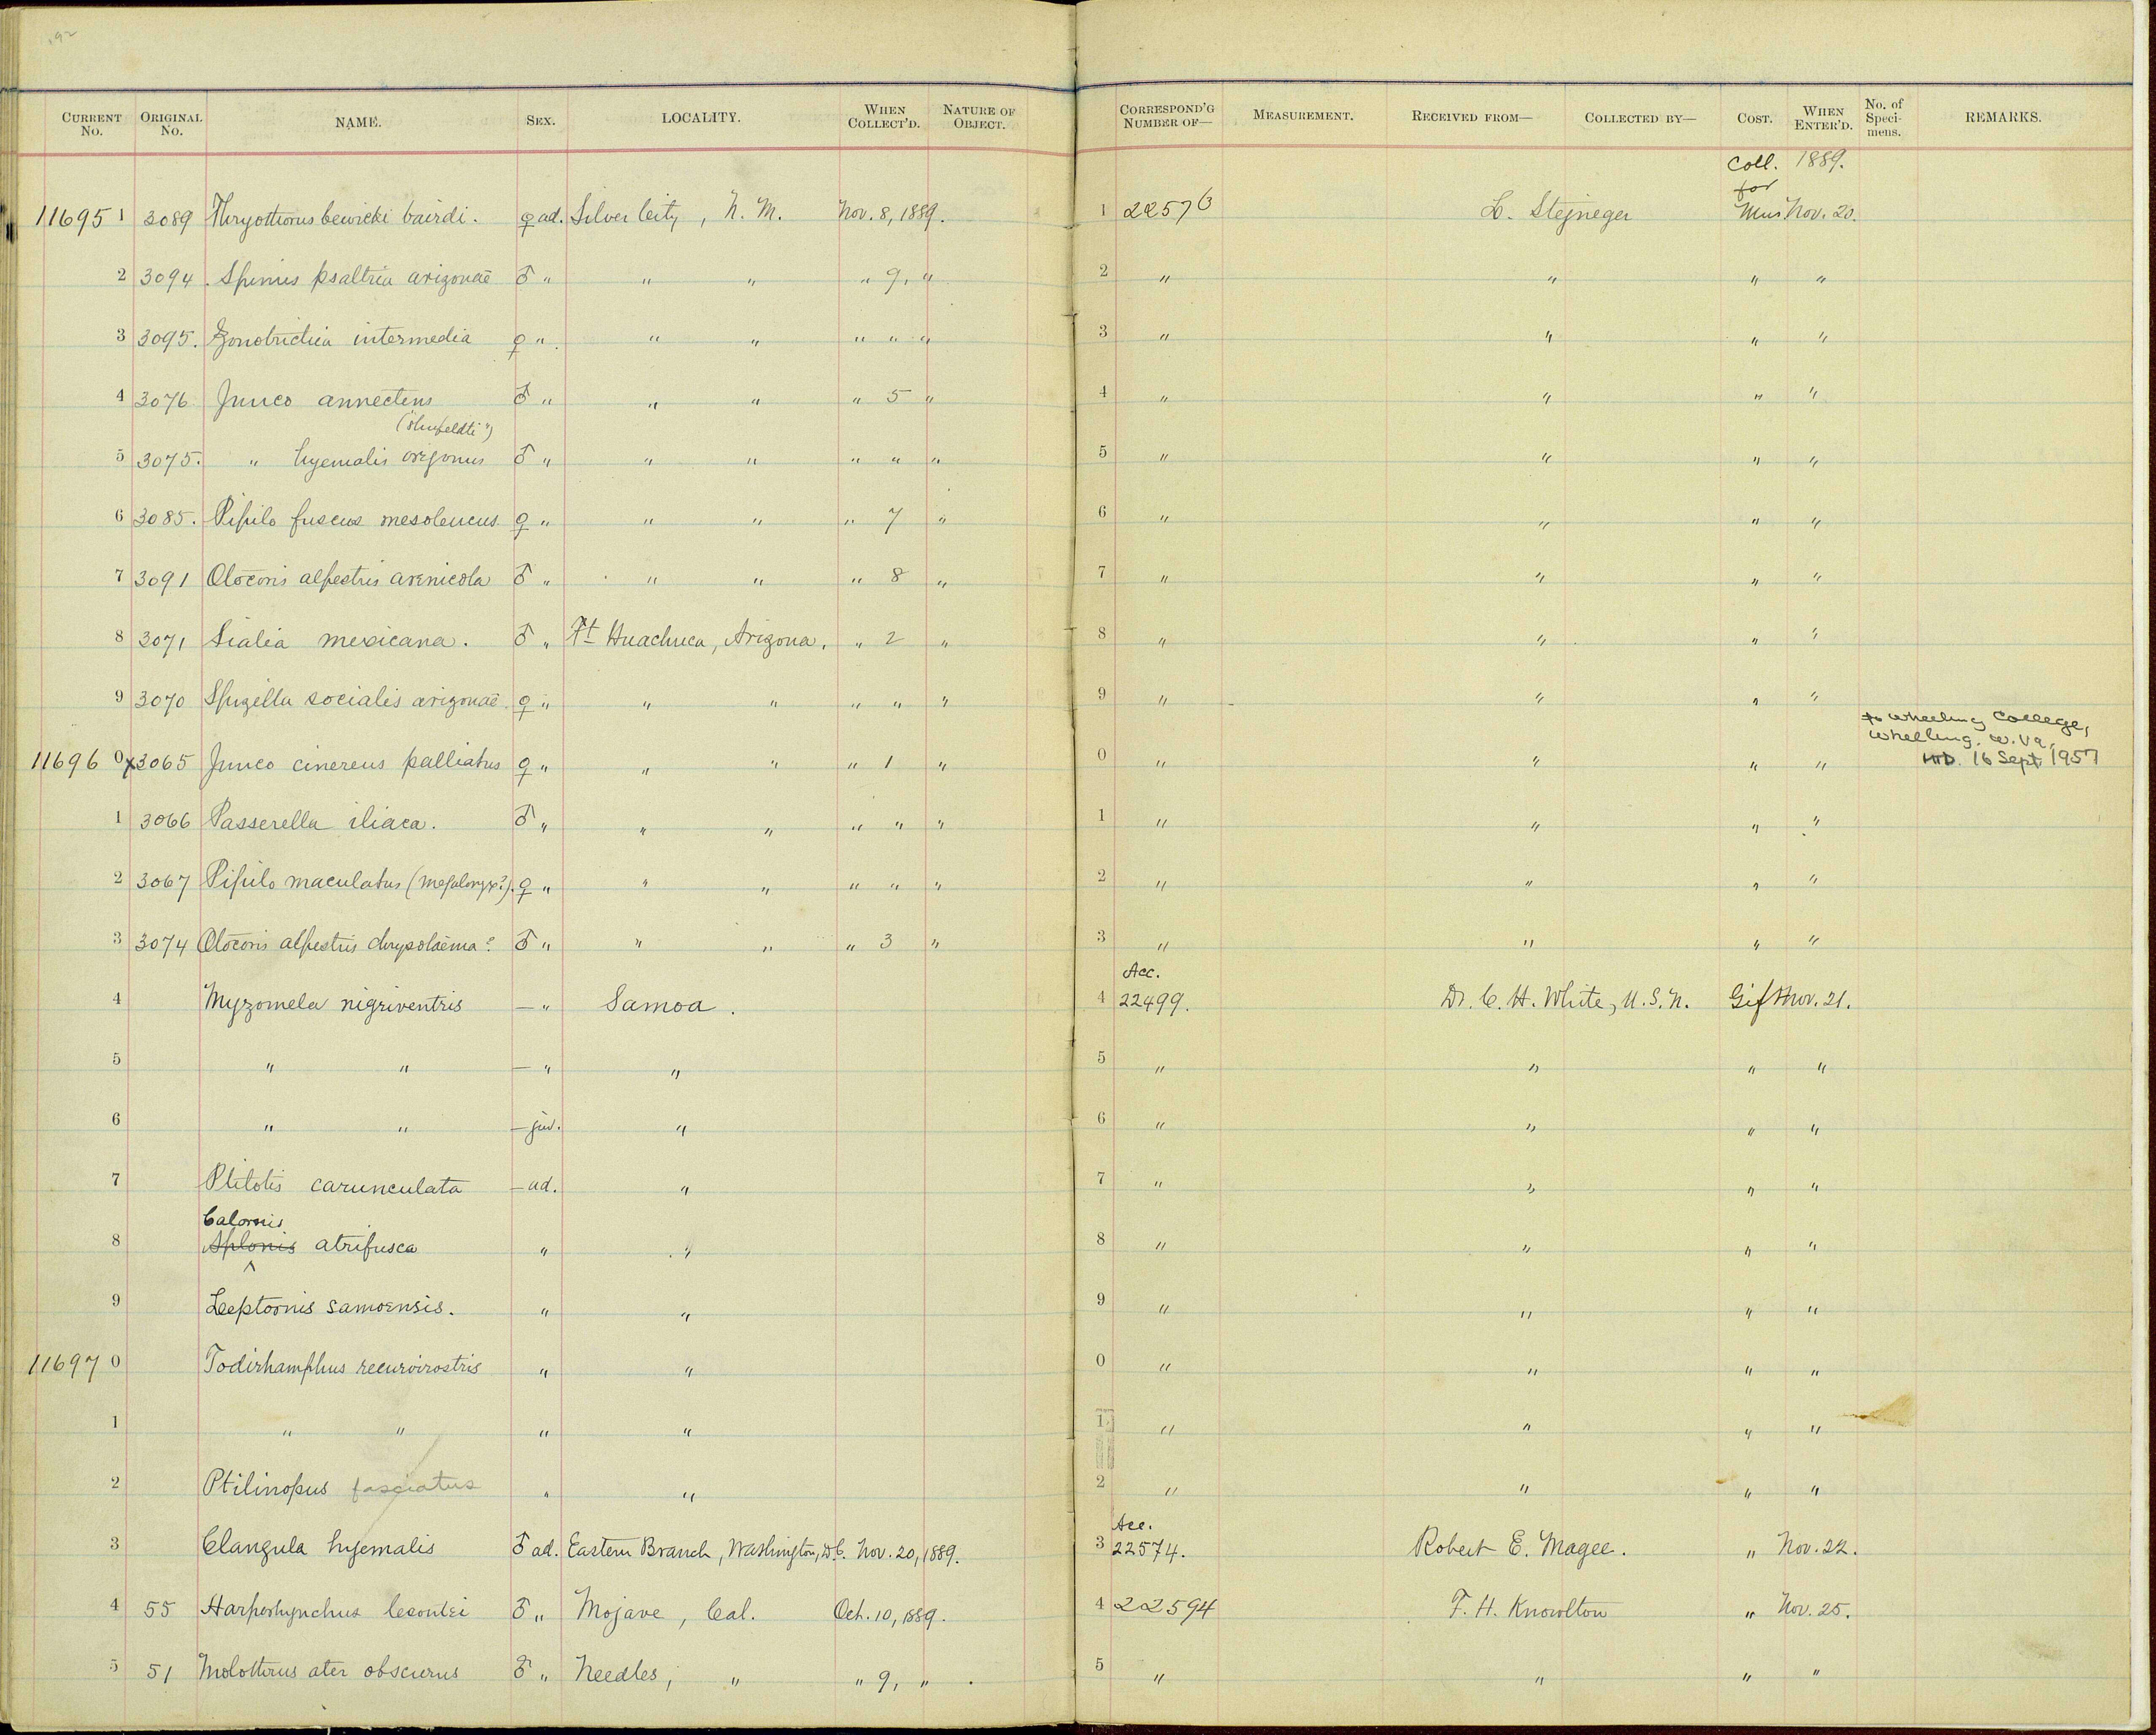 CURRENT No. ORIGINAL No. NAME. SEX. LOCALITY. WHEN COLLECT'D. NATURE OF OBJECT. CORRESPOND'G NUMBER OF— MEASUREMENT. RECEIVED FROM— COLLECTED BY— COST. WHEN ENTER'D. No. of Specimens. REMARKS.
Coll. 1889.
for
11695 1 3089 Thryothorus bewicki bairdi. ♀ ad. Silver City, N. M. Nov. 8, 1889. 1 22576 L. Stejneger Mus Nov. 20.
2 3094. Spinus psaltria arizonaë ♂ " " " " 9, " 2 " " " "
3 3095. Zonotrichia intermedia ♀ " " " " " " 3 " " " "
4 3076 Junco annectens ♂ " " " " 5 " 4 " " " "
("shufeldti")
5 3075. " hyemalis oregonus ♂ " " " " " " 5 " " " "
6 3085. Pipilo fuscus mesoleucus ♀ " " " " 7 " 6 " " " "
7 3091 Otocoris alpestris arenicola ♂ " " " " 8 " 7 " " " "
8 3071 Sialia mexicana. ♂ " Ft Huachuca, Arizona. " 2 " 8 " " " "
9 3070 Spizella socialis arizonaë. ♀ " " " " " " 9 " " " "
to Wheeling College,
Wheeling, W. Va.
11696 0 x3065 Junco cinereus palliatus ♀ " " " " 1 " 0 " " " " 16 Sept 1957
1 3066 Passerella iliaca. ♂ " " " " " " 1 " " " "
2 3067 Pipilo maculatus (megalonyx?). ♀ " " " " " " 2 " " " "
3 3074 Otocoris alpestris chrysolaëma? ♂ " " " " 3 " 3 " " " "
Acc.
4 Myzomela nigriventris — " Samoa. 4 22499. Dr. C. H. White, U.S.N. Gift Nov. 21.
5 " " — " " 5 " " " "
6 " " — juv. " 6 " " " "
7 Ptilotis carunculata — ad. " 7 " " " "
Calornis
8 Aplonis atrifusca " " 8 " " " "
9 Leptornis samoensis. " " 9 " " " "
11697 0 Todirhamphus recurvirostris " " 0 " " " "
1 " " " " 1 " " " "
2 Ptilinopus fasciatus " " 2 " " " "
Acc.
3 Clangula hyemalis ♂ ad. Eastern Branch, Washington, D.C. Nov. 20, 1889. 3 22574. Robert E. Magee. " Nov. 22.
4 55 Harporhynchus lecontei ♂ " Mojave, Cal. Oct. 10, 1889. 4 22594 F. H. Knowlton " Nov. 25.
5 51 Molothrus ater obscurus ♂ " Needles, " " 9, " 5 " " " "